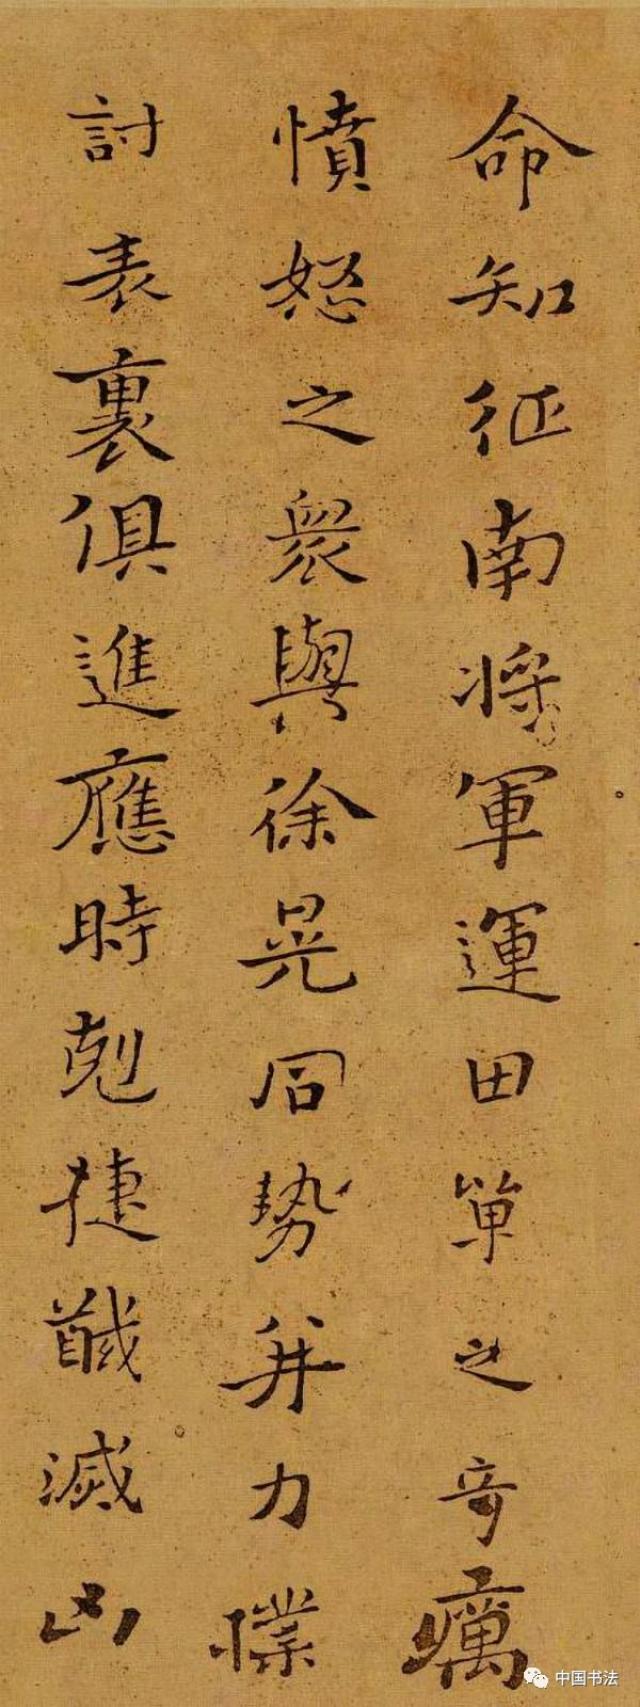 命知征南将軍運田單之奇厲
憤怒之眾與徐晃同势并力撲
討表裏俱進應時剋捷馘滅凶
中国书法